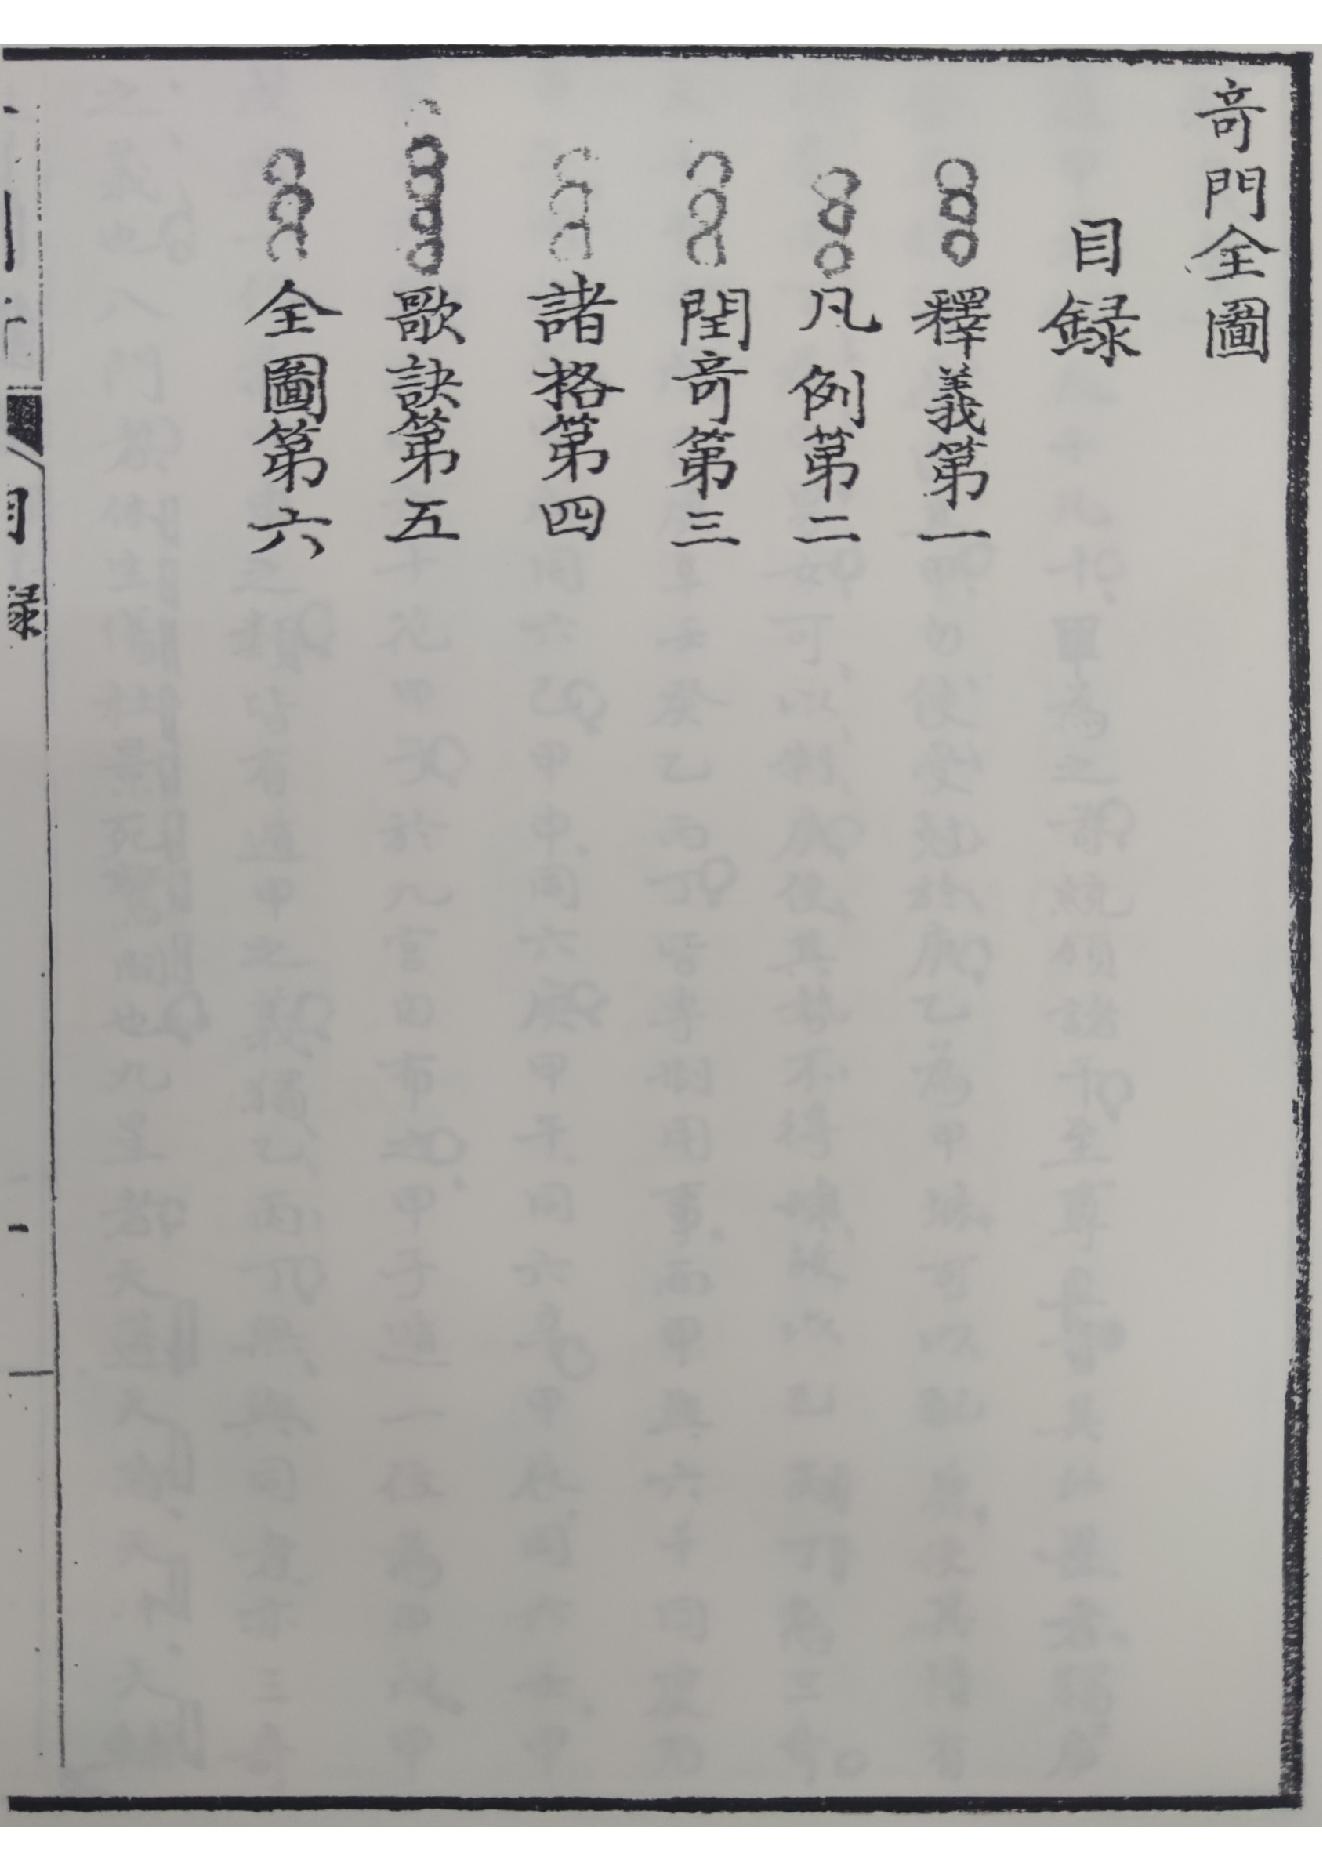 奇門全圖
目錄
釋義第一
凡例第二
閏奇第三
諸格第四
歌訣第五
全圖第六
目錄
一